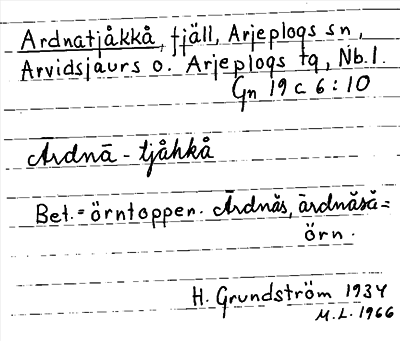 Ardnatjåkkå, fjäll, Arjeplogs sn,
Arvidsjaurs o. Arjeplogs tq, Nb.l.
Gn 19 c 6:10
Ārdnā - tjåhkå
Bet. = örntoppen. Ārdnăs, ārdnăsă =
örn.
H. Grundström 1934
M.L. 1966